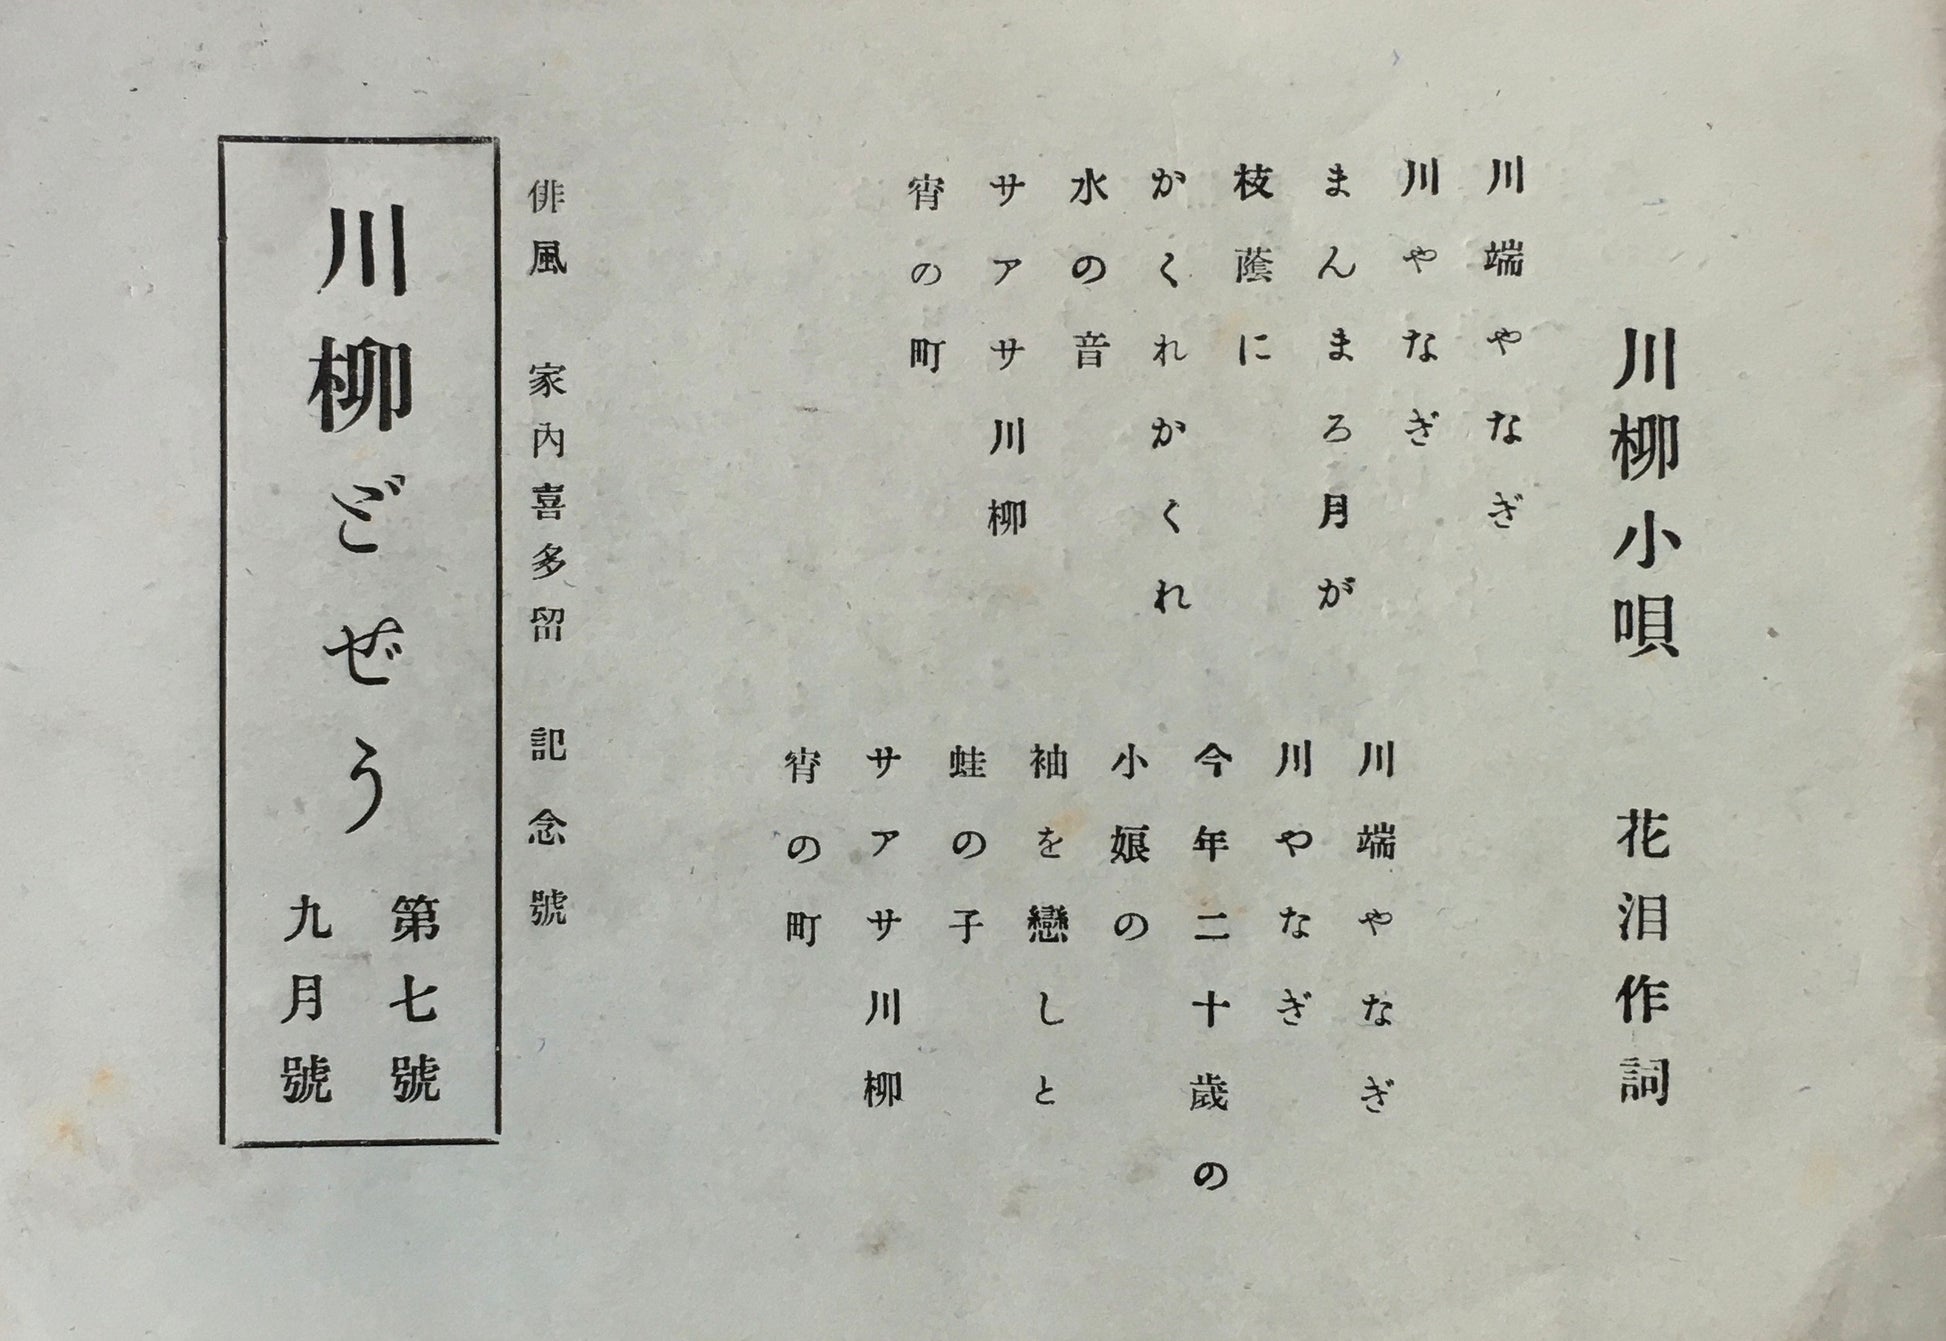 川柳小唄　花泪作詞
川端やなぎ
川やなぎ
まんまろ月が
枝蔭に
かくれかくれ
水の音
サアサ川柳
宵の町
川端やなぎ
川やなぎ
今年二十歳の
小娘の
袖を戀しと
蛙の子
サアサ川柳
宵の町
俳風　家内喜多留　記念號
川柳どぜう
第七號
九月號